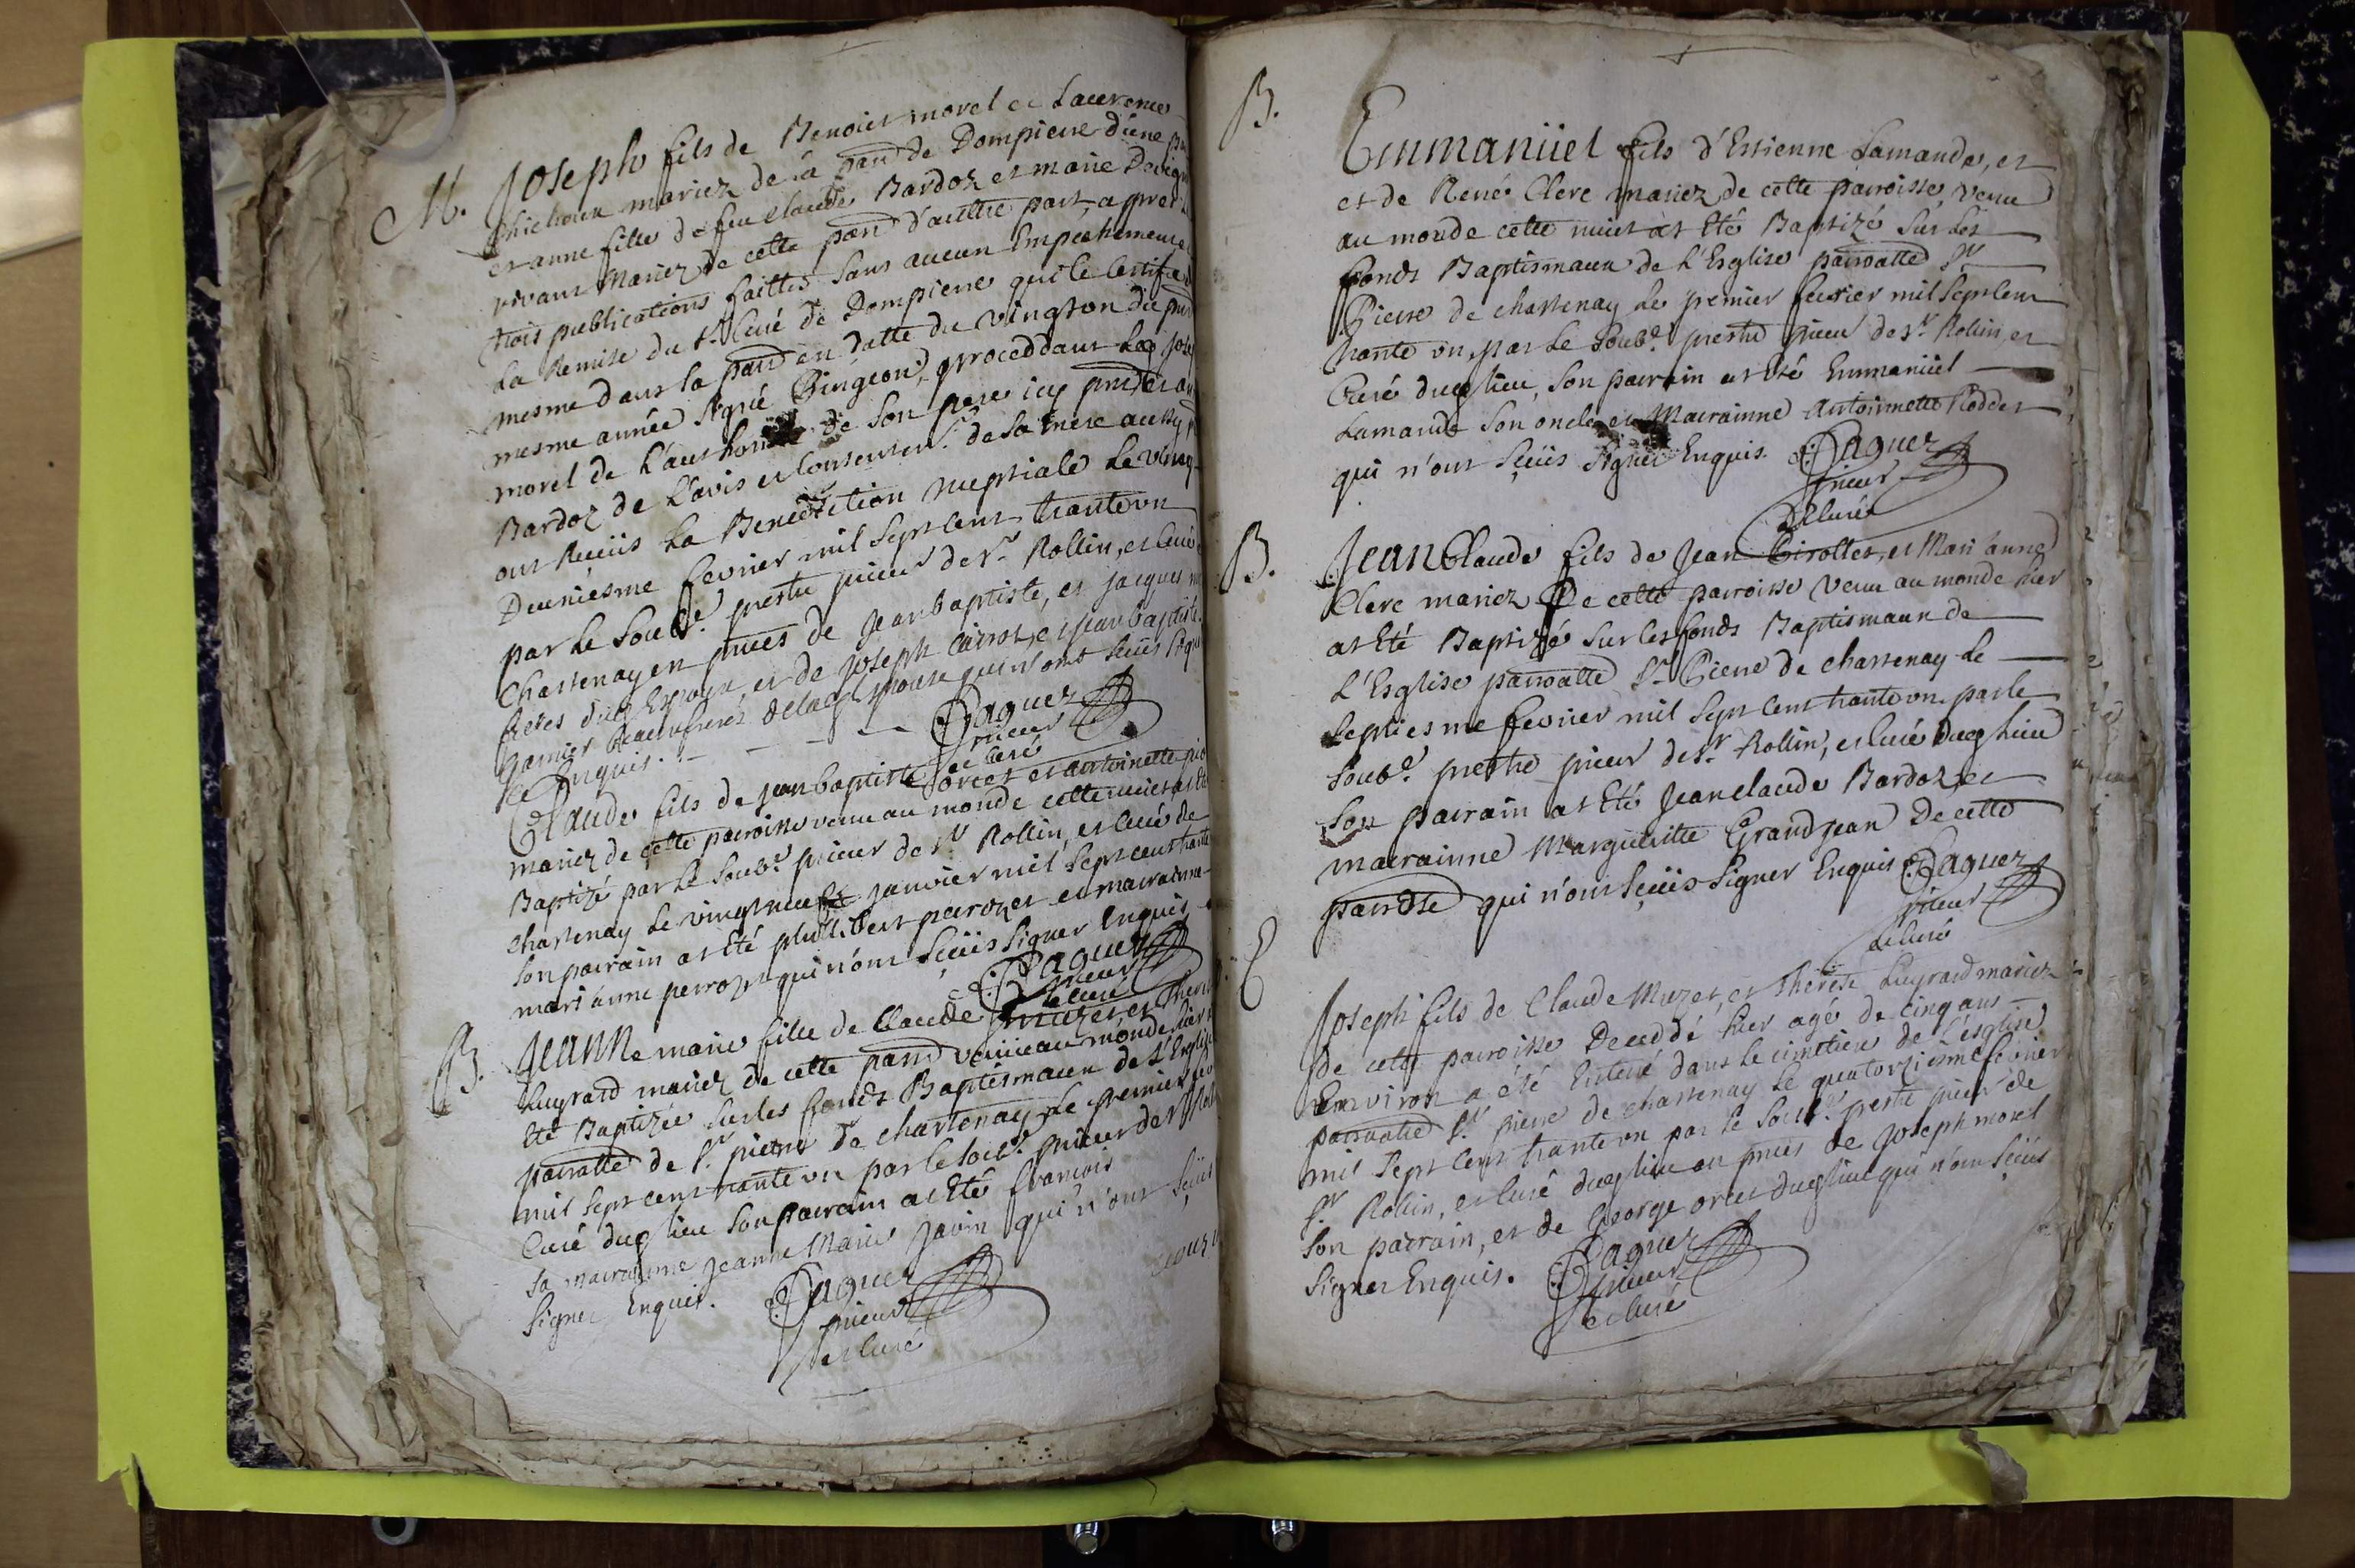 M. Joseph fils de Benoist morel et Laurence
mariez de la parr de Dompierre d'une
et anne fille de feu claude Bardoz et marie
vivant Mariez de cette parr d'aultre part, apres
trois publications faittes sans aucun Empechement
La Remise du Sr. Curé de Dompierre qui le Certifie
mesme dans sa parr en datte du vingt on du
mesme année Signé Gingeon, proceddant Led Jose
morel de L'authorité de son pere icy prndt et
Bardoz de L'avis et Consentemt. de sa mere aussy
ont Reçüis La Benediction nuptiale Le vingt
Deuxiesme fevrier mil sept cent trante un
par Le soubs.é prestre prieur de St. Rollin, et Curé
Chastenay en pnces de Jean baptiste, et jacques
freres dud. Espoux, et de Joseph Cairot, et Jean baptiste
Garnier Beaux freres de lad. Epouse qui n'ont sçüis Sig
Enquis. Paguez
prieur
et Curé
Claude fils de jean baptiste orcet et antoinette
mariez de cette paroisse venu au monde cette nuict at été
Baptizé par Le soubs.é prieur de St. Rollin, et Curé de
chastenay Le vingt neuf janvier mil sept cent trante
son pairain at Eté philibert perroz et et mairainne
mari anne perroz qui n'ont sçüis Signer Enquis
Paguez
prieur
et Curé
B. Jeanne marie fille de Claude Muzet, et Therese
Lugrand mariez de cette parr venüe au monde hier
Eté Baptizée sur les fonds Baptismaux de L'Eglise
parroalle de St. pierre de chastenay Le premier
mil sept cent trante un par le soubs.é prieur de St Rol
Curé dud. lieu son pairain at Eté françois
sa mairainne Jeanne Marie Javin qui n'ont sçüis
Signer Enquis. Paguez
prieur
et Curé
B. Emmanüel fils d'Estienne Lamande, et
et de René Clerc mariez de cette parroisse venu
au monde cette nuict at Eté Baptizé sur Les
fonds Baptismaux de L'Esglise parroalle St
Pierre de chastenay Le premier fevrier mil sept cent
trante un, par Le soubs.é prestre prieur de St. Rollin, et
Curé dud. lieu, son pairain at Eté Emmanüel
Lamande son oncle et Mairainne Antoinette Roddet
qui n'ont sçüis Signer Enquis. Paguez
prieur
et Curé
B. Jean Claude fils de Jean Girollet, et Mari'anne
Clerc mariez De cette parroisse venu au monde hier
at Eté Baptizé sur les fonds Baptismaux de
L'Esglise parroalle St. Pierre de chastenay Le
septiesme fevrier mil sept cent trante un par le
soubs.é prestre prieur de St. Rollin, et Curé dud. lieu
son pairain at Eté Jean claude Bardoz, et
mairainne Marguüritte Grand jean De cette
parroisse qui n'ont sçüis Signer Enquis Paguez
prieur
et Curé
E Joseph fils de Claude Muzet, et Therese Lugrand mariez
de cette parroisse Deceddé hier agé de cinq ans
Environ a été Enterré dans le cimetiere de L'esglise
parroalle St. pierre de chastenay Le quatorziesme fevrier
mil sept cent trante un par le soubs.é prestre prieur de
St. Rollin, et Curé dud. lieu en pnces de Joseph morel
son pairain, et de George orcet dud. lieu qui n'ont sçüis
Signer Enquis. Paguez
prieur
et Curé